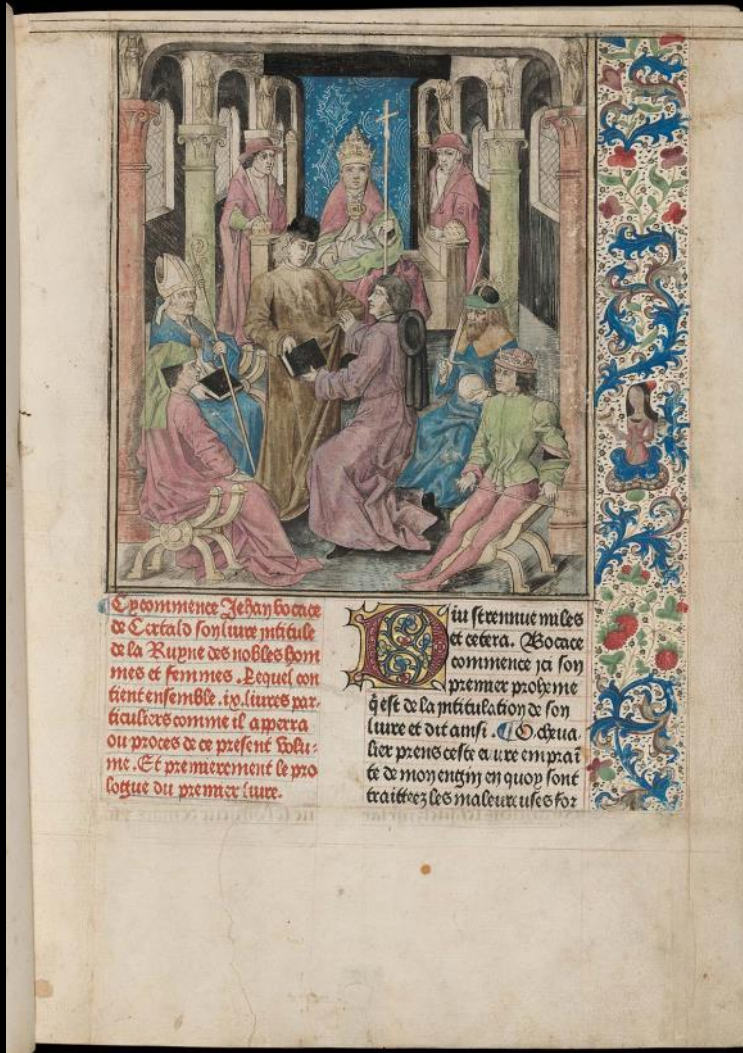 Cy commence Jehan bocace
de Certald son liure jntitule
de la Ruyne des nobles hom
mes et femmes. Lequel con
tient ensemble .ix. liures par-
ticuliers comme il apperra
ou proces de ce present volu-
me. Et premierement le pro
logue du premier liure.
Diu strennue miles
et cetera. Bocace
commence jci son
premier proheme
q̄ est de la jntitulation de son
liure et dit ainsi. ¶ O cheua-
lier prens ceste euure emprai
te de mon engin en quoy sont
traitteez les maleureuses for